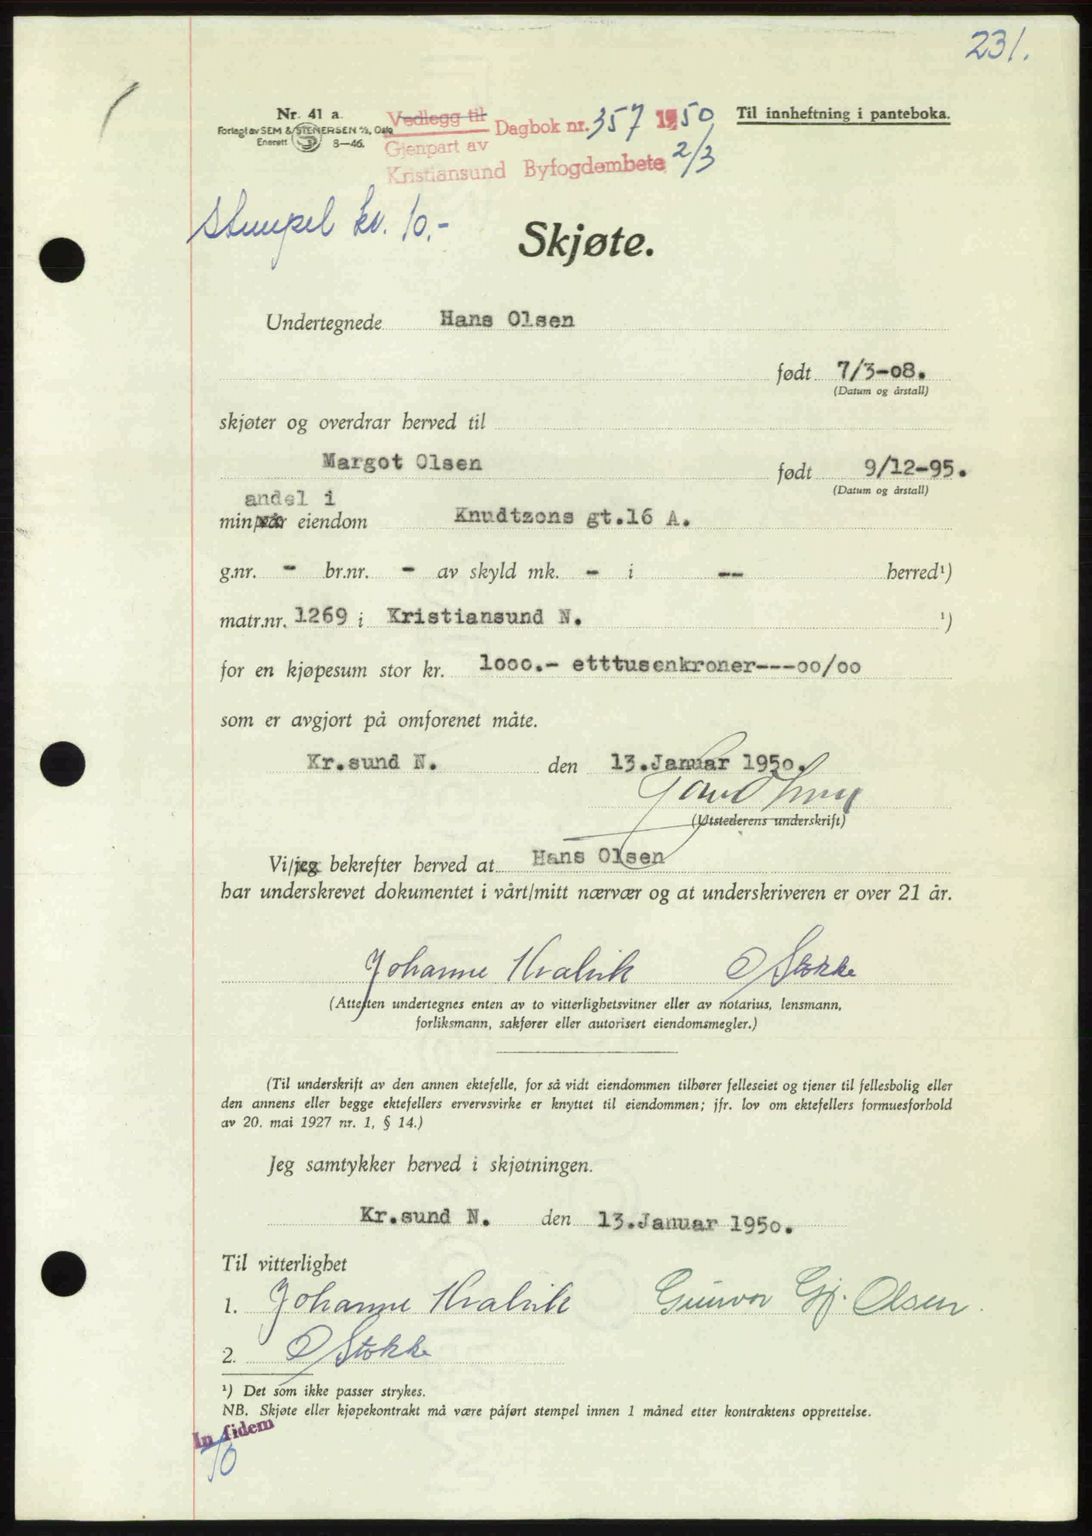 231.
Nr. 41 a.
Forlagt av SEM & STENERSEN A/S, Oslo
Enerett 8—46.
Vedlegg til
Gjenpart av
Dagbok nr. 357 1950
2/3
Kristiansund Byfogdembete
Til innheftning i panteboka.
Stempel kr. 10.-
Skjøte.
Undertegnede Hans Olsen
født 7/3-08.
(Datum og årstall)
skjøter og overdrar herved til
Margot Olsen født 9/12-95.
(Datum og årstall)
andel i
min/vår eiendom Knudtzons gt.16 A.
g.nr. - br.nr. - av skyld mk. - i -- herred¹)
matr.nr. 1269 i Kristiansund N. ¹)
for en kjøpesum stor kr. 1000.- etttusenkroner---00/00
som er avgjort på omforenet måte.
Kr.sund N. den 13.Januar 1950.
(Utstederens underskrift)
Vi/jeg bekrefter herved at Hans Olsen
har underskrevet dokumentet i vårt/mitt nærvær og at underskriveren er over 21 år.
Johanne Kvalvik O Stokke
(Attesten undertegnes enten av to vitterlighetsvitner eller av notarius, lensmann,
forliksmann, sakfører eller autorisert eiendomsmegler.)
(Til underskrift av den annen ektefelle, for så vidt eiendommen tilhører felleseiet og tjener til fellesbolig eller
den annens eller begge ektefellers ervervsvirke er knyttet til eiendommen; jfr. lov om ektefellers formuesforhold
av 20. mai 1927 nr. 1, § 14.)
Jeg samtykker herved i skjøtningen.
Kr.sund N. den 13.Januar 1950.
Til vitterlighet
1. Johanne Kvalvik Gunvor Gj. Olsen.
2. O Stokke
¹) Det som ikke passer strykes.
NB. Skjøte eller kjøpekontrakt må være påført stempel innen 1 måned etter kontraktens opprettelse.
In fidem